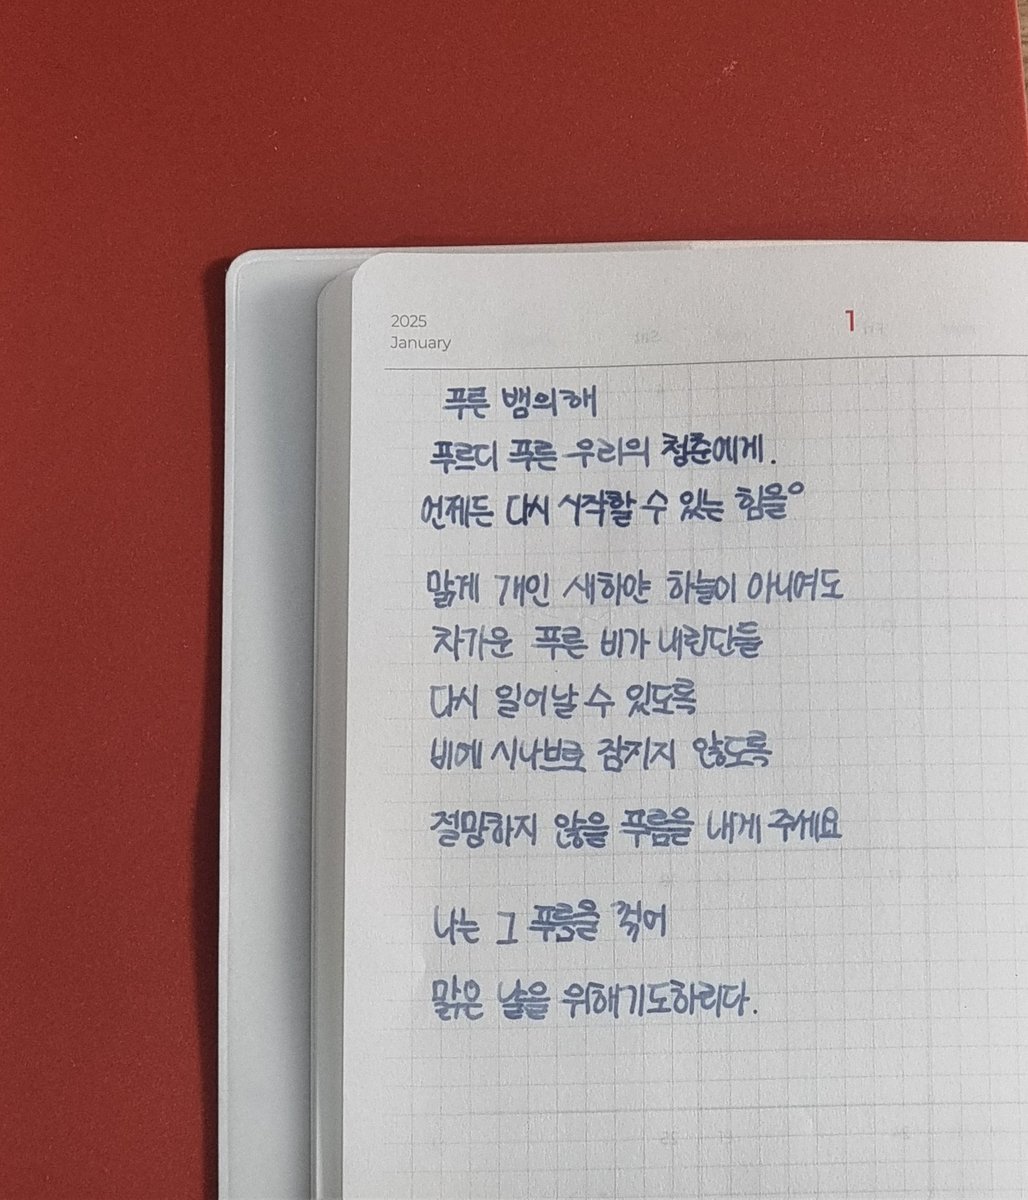 2025
January
1
푸른 뱀의해
푸르디 푸른 우리의 청춘에게.
언제든 다시 시작할 수 있는 힘을。
맑게 개인 새하얀 하늘이 아니여도
차가운 푸른 비가 내린단들
다시 일어날 수 있도록
비에 시나브로 잠기지 않도록
절망하지 않을 푸름을 내게 주세요
나는 그 푸름을 꺾어
맑은 날을 위해기도하리다.